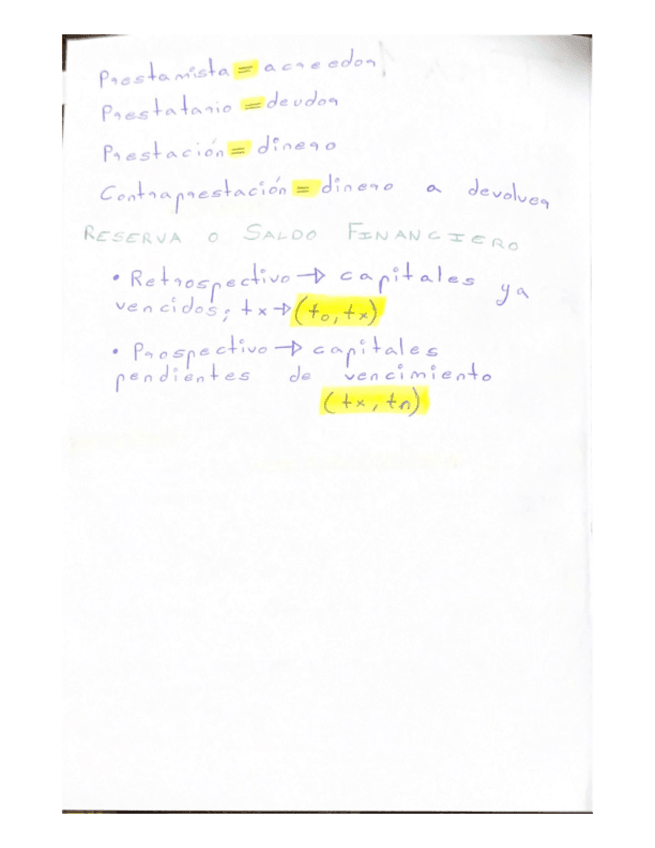 Prestamista = acreedor
Prestatario = deudor
Prestación = dinero
Contraprestación = dinero a devolver
RESERVA O SALDO FINANCIERO
• Retrospectivo → capitales ya
vencidos; tx → (to, tx)
• Prospectivo → capitales
pendientes de vencimiento
(tx, tn)